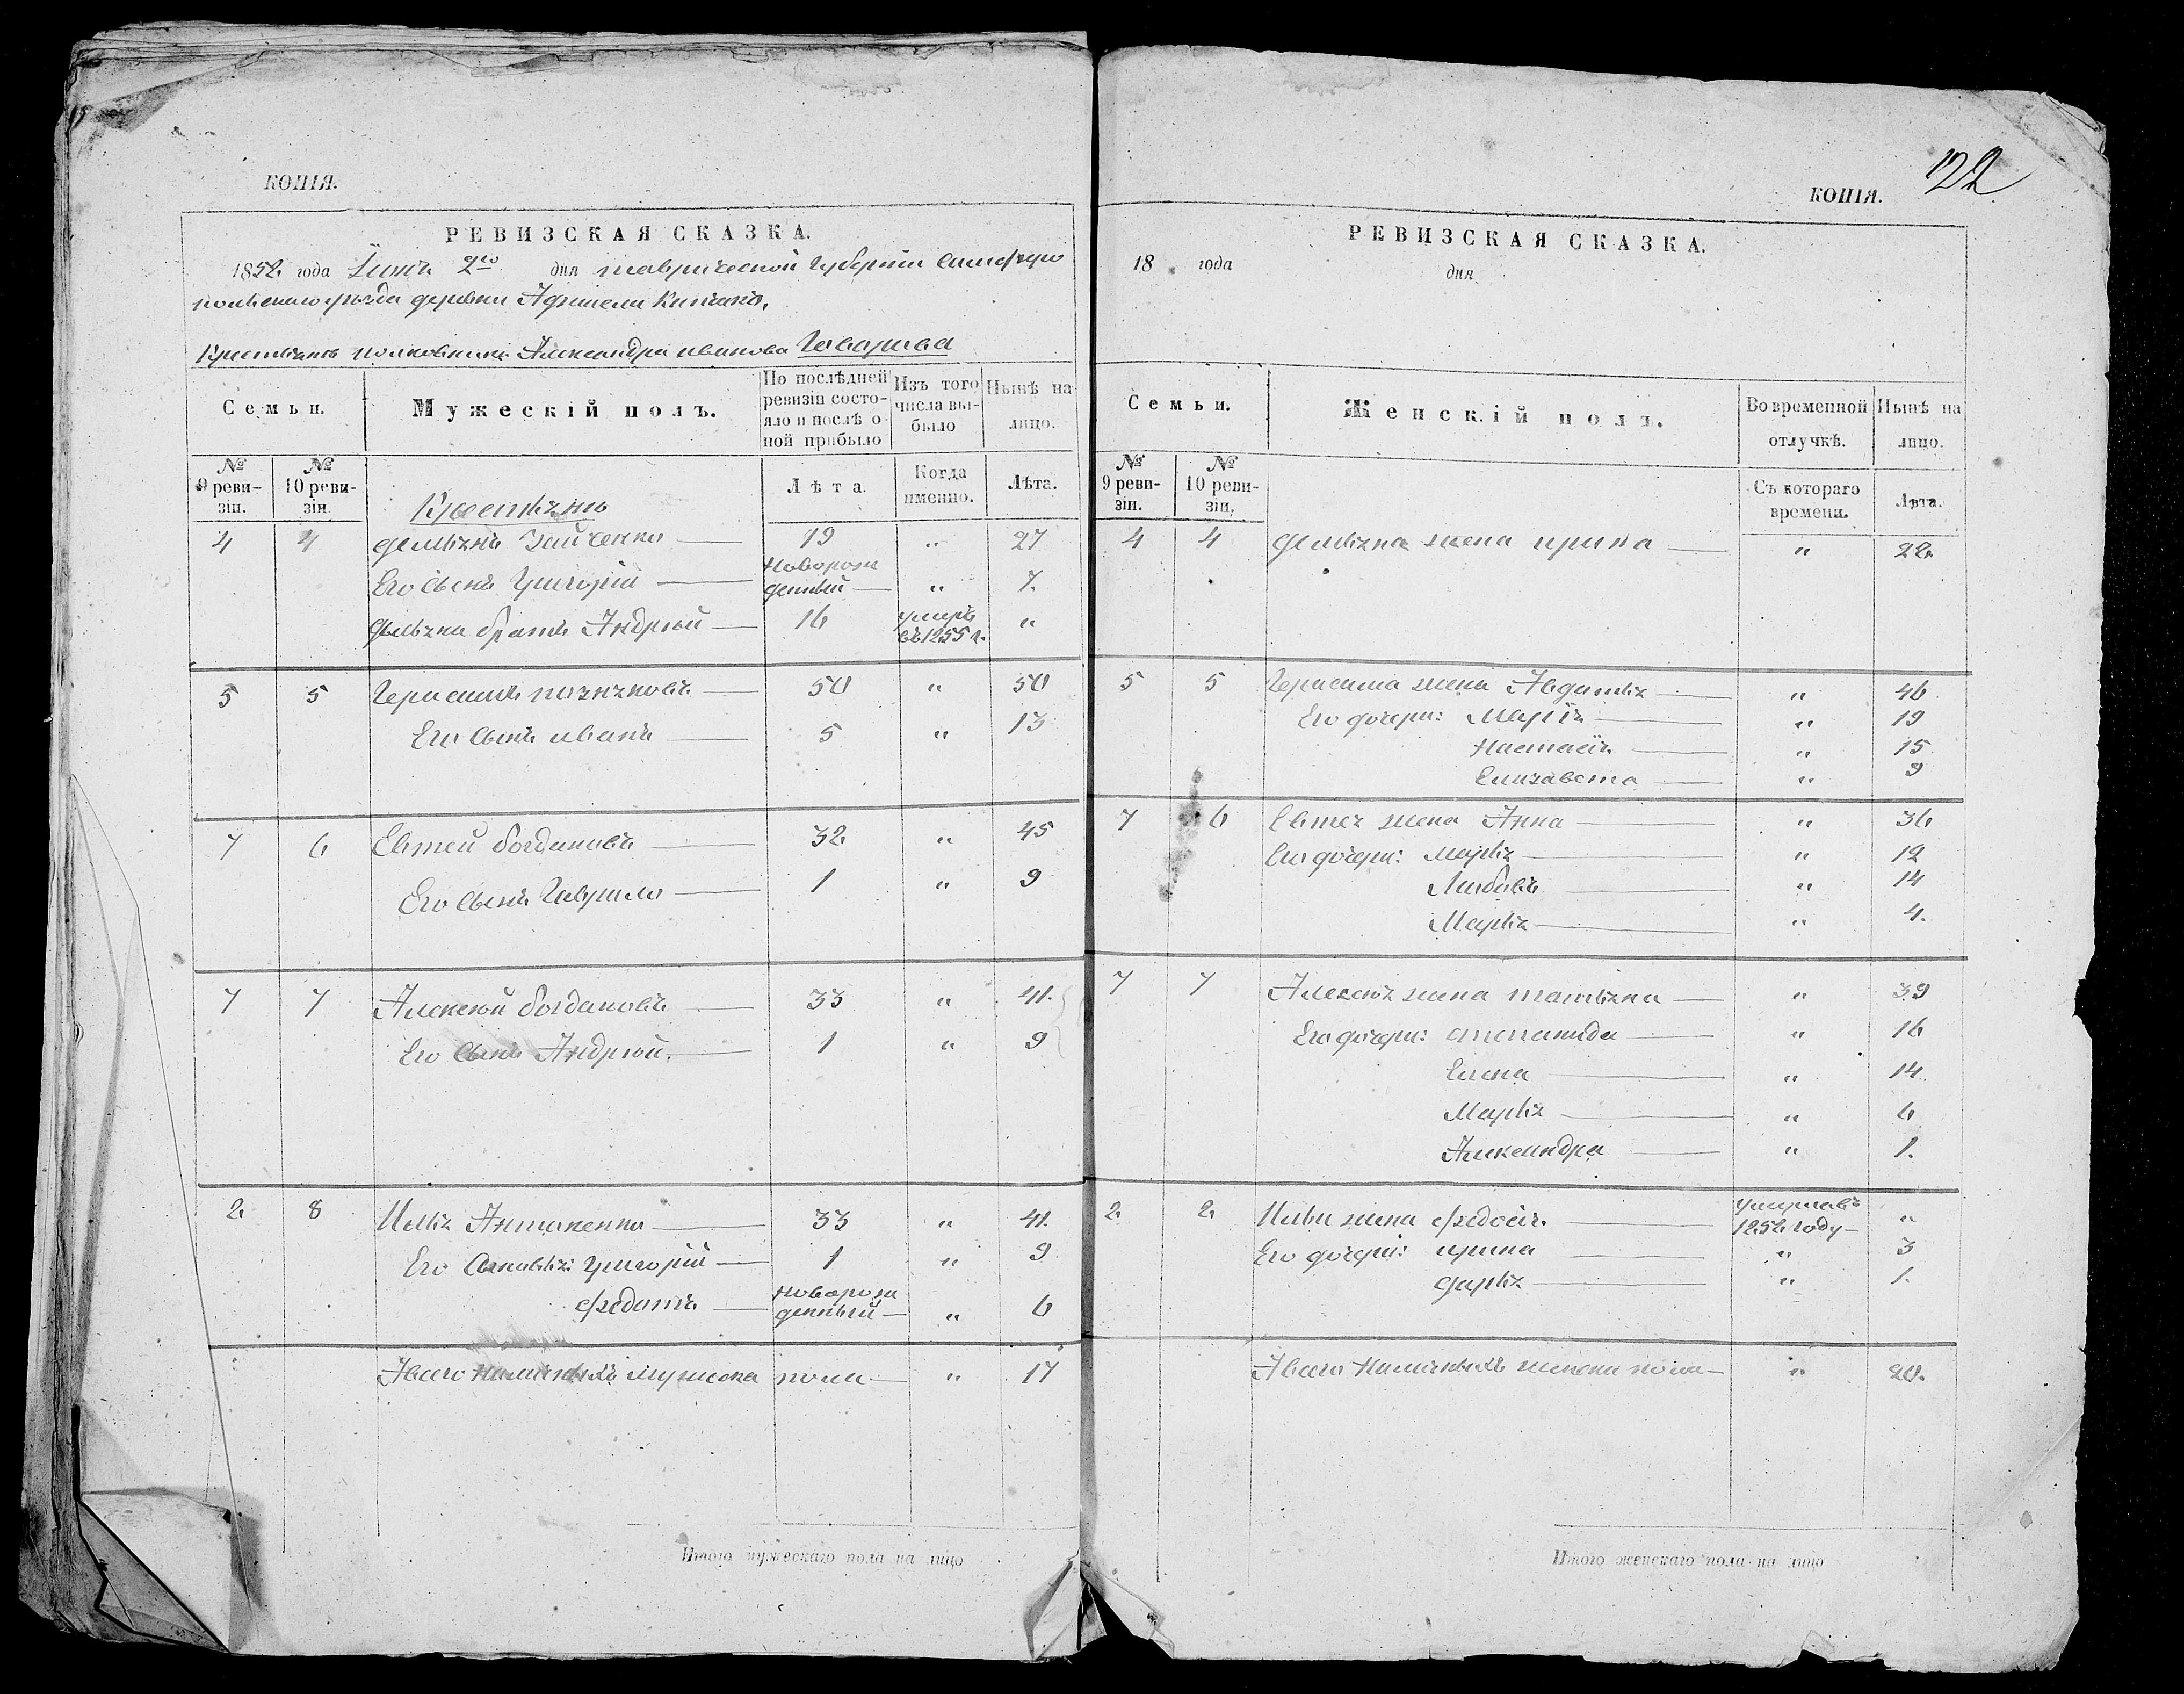 КОПІЯ.
РЕВИЗСКАЯ СКАЗКА.
1858 года Іюня 2го дня таврической Губерніи симферо
польскаго уѣзда деревни
Крестьянъ полковника Александра иванова
Семьи.
Мужескій полъ.
По послѣдней ревизіи состояло и послѣ оной прибыло
Изъ того числа выбыло
Нынѣ на лицо.
№ 9 ревизіи.
№ 10 ревизіи.
Лѣта.
Когда именно.
Лѣта.
Крестьянъ
4 4 демьянъ Зайченко 19 „ 27
Его Сынъ Григорій новорожденный „ 7.
демьяна братъ Андрѣй 16 умеръ въ 1855 г. „
5 5 Герасимъ 50 „ 50
Его Сынъ иванъ 5 „ 13
7 6 Евтей богдановъ 32 „ 45
Его Сынъ Гаврило 1 „ 9
7 7 Алексѣй богдановъ 33 „ 41.
Его Сынъ Андрѣй. 1 „ 9
2 8 Илья Антоненко 33 „ 41.
Его Сыновья: Григорій 1 „ 9
федотъ новорожденный „ 6
Авсего Наличныхъ мужеска пола „ 17
Итого мужескаго пола на лицо
122
КОПІЯ.
РЕВИЗСКАЯ СКАЗКА.
18 года дня
Семьи.
Женскій полъ.
Во временной отлучкѣ.
Нынѣ на лицо.
№ 9 ревизіи.
№ 10 ревизіи.
Съ котораго времени.
Лѣта.
4 4 демьяна жена ирина „ 22
5 5 Герасима жена Авдотья „ 46
Его дочери: Марія „ 19
Настасія „ 15
Елизавета „ 9
7 6 Евтея жена Анна „ 36
Его дочери: Марья „ 12
Любовь „ 14
Марья „ 4.
7 7 Алексѣя жена татьяна „ 39
Его дочери: степанида „ 16
Елена „ 14.
Марья „ 6
Александра „ 1.
2 2 Ильи жена федосія умерла въ 1856 году „
Его дочери: ирина „ 3
дарья „ 1.
Авсего Наличныхъ женска пола „ 20.
Итого женскаго пола на лицо